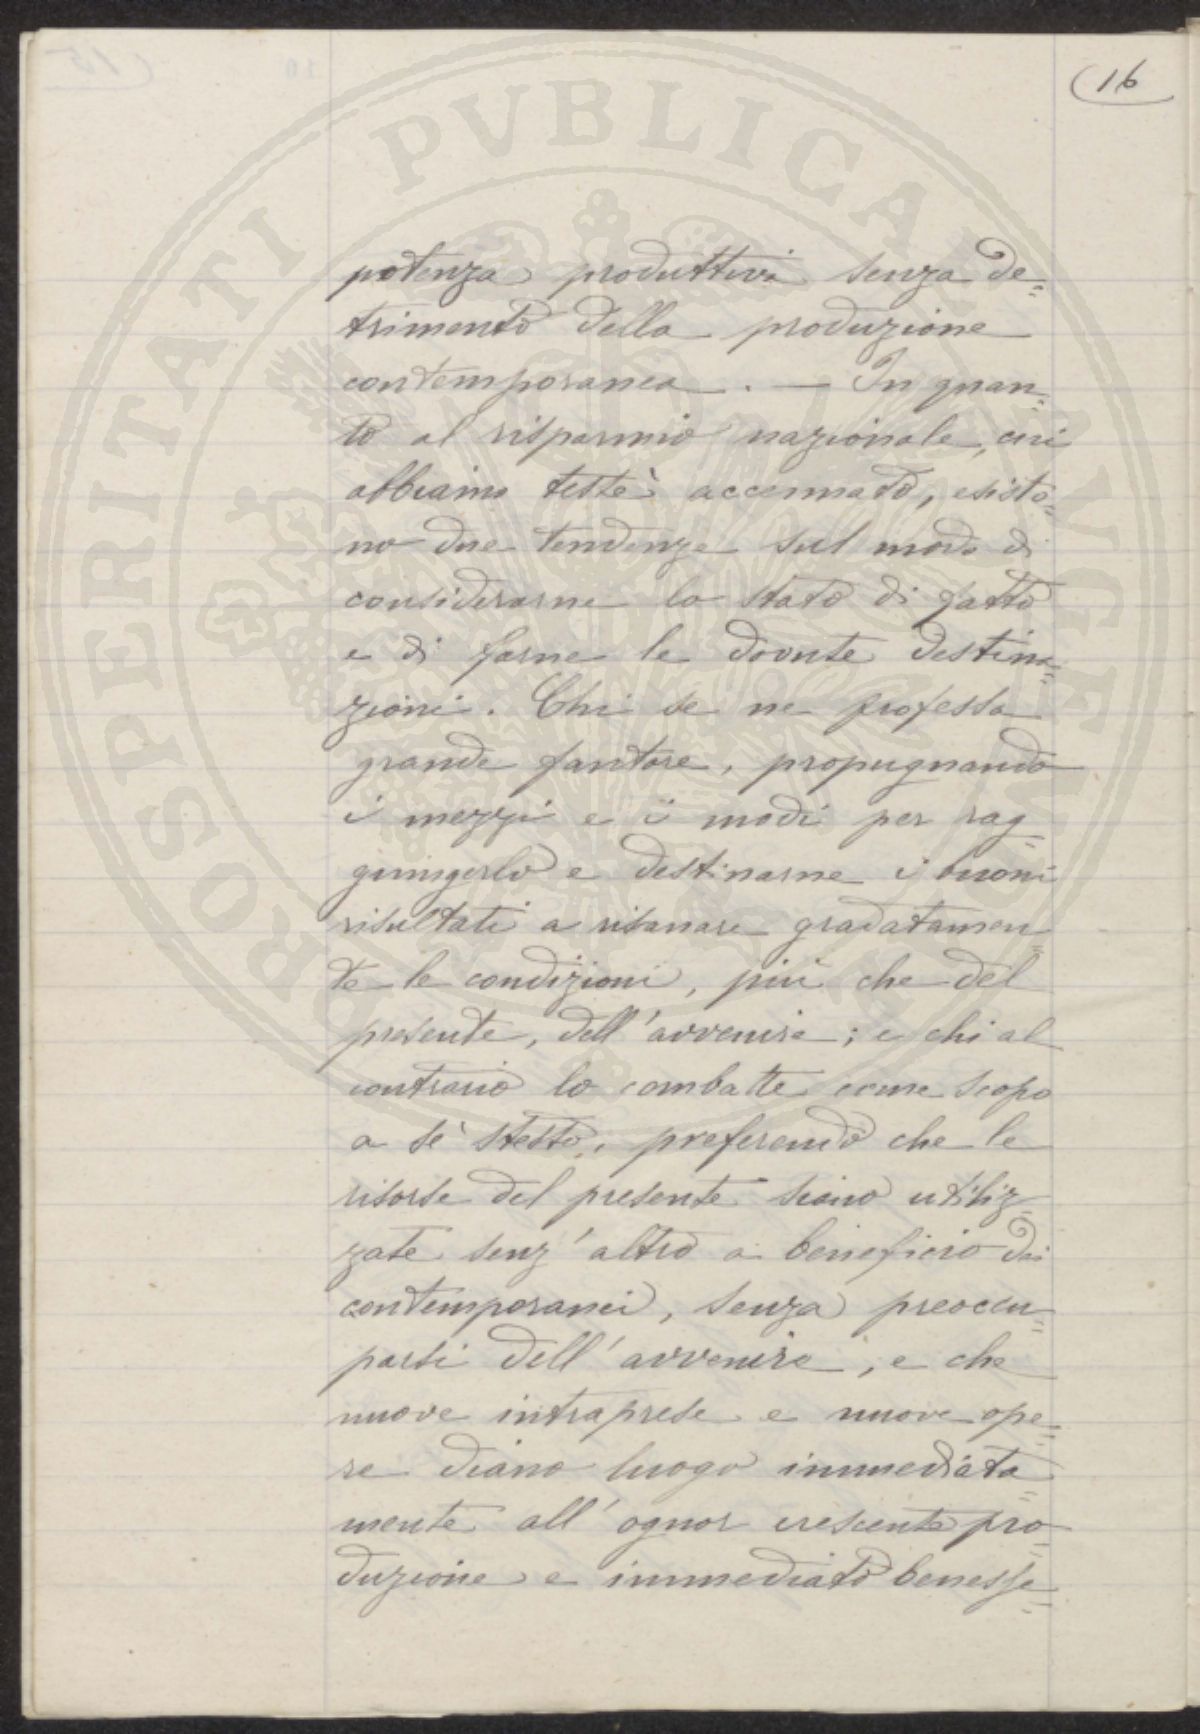 (16
potenza produttiva senza de=
trimento della produzione
contemporanea. — In quan=
to al risparmio nazionale, cui
abbiamo testè accennato, esisto=
no due tendenze sul modo di
considerarne lo stato di fatto
e di farne le dovute destina=
zioni. Chi se ne professa
grande fautore, propugnando
i mezzi e i modi per rag=
giungerlo e destinarne i buoni
risultati a risanare gradatamen=
te le condizioni, più che del
presente, dell'avvenire; e chi al
contrario lo combatte come scopo
a sè stesso, preferendo che le
risorse del presente siano utiliz=
zate senz'altro a beneficio dei
contemporanei, senza preoccu=
parsi dell'avvenire, e che
nuove intraprese e nuove ope=
re diano luogo immediata=
mente all'ognor crescente pro=
duzione e immediato benesse=
PROSPERITATI PVBLICAE AVGENDAE